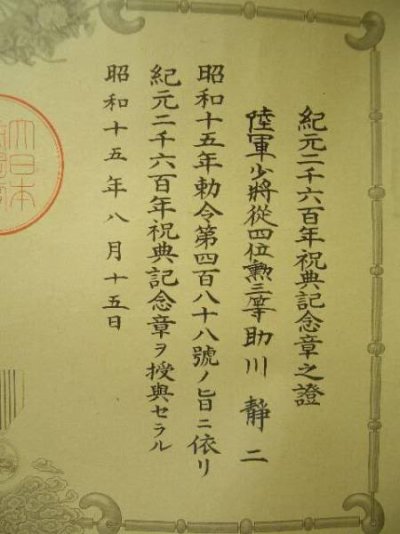 紀元二千六百年祝典記念章之證
陸軍少將從四位勲三等助川靜二
昭和十五年勅令第四百八十八號ノ旨ニ依リ
紀元二千六百年祝典記念章ヲ授與セラル
昭和十五年八月十五日
大日本